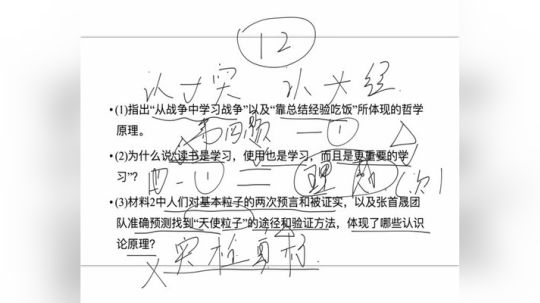 12
认 实 认 经
•(1)指出“从战争中学习战争”以及“靠总结经验吃饭”所体现的哲学
原理。
第四题 一①
•(2)为什么说“读书是学习，使用也是学习，而且是更重要的学
习”?
四一① 二
•(3)材料2中人们对基本粒子的两次预言和被证实，以及张首晟团
队准确预测找到“天使粒子”的途径和验证方法，体现了哪些认识
论原理?
实检真标